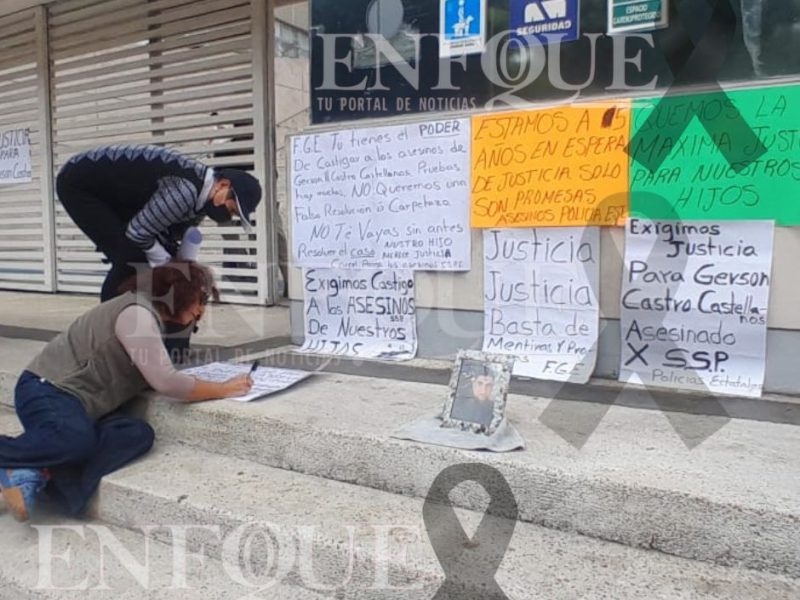 ENFOQUE
TU PORTAL DE NOTICIAS
SEGURIDAD
ESPACIO
CARDIOPROTEGIDO
JUSTICIA
PARA
Gerson
F.G.E Tu tienes el PODER
De Castigar A los asesinos de
Gerson y Castro Castellanos. Pruebas
hay muchas. NO Queremos una
Falsa Resolución ó Carpetazo.
NO Te Vayas Sin antes
Resolver el caso NUESTRO HIJO
MERECE JUSTICIA
ESTAMOS A 5
AÑOS EN ESPERA
DE JUSTICIA SOLO
SON PROMESAS
ASESINOS POLICIA
QUEMOS LA
MAXIMA JUSTI
PARA NUESTROS
HIJOS
Exigimos Castigo
A los ASESINOS
SSP
De Nuestros
HIJOS
Justicia
Justicia
Basta de
Mentiras y
F.G.E
Exigimos
Justicia
Para Gerson
Castro Castella
nos
Asesinado
X SSP.
Policías Estatales
ENFOQUE
TU PORTAL DE NOTICIAS
ENFOQUE